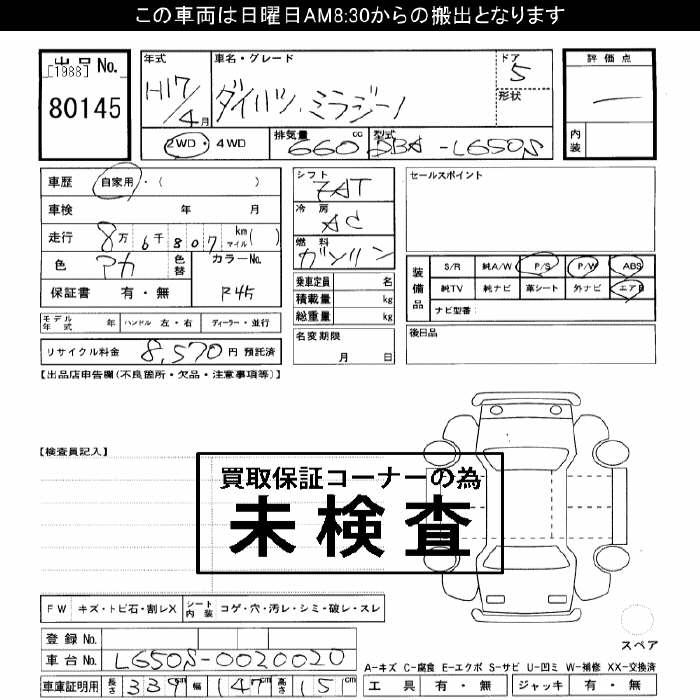 この車両は日曜日AM8:30からの搬出となります
出品No.
[1988]
80145
年式
H17/4月
車名・グレード
ダイハツ、ミラジーノ
ドア
5
形状
2WD・4WD
排気量
660cc
型式
DBA-L650S
評価点
内装
車歴 自家用・( )
車検 年 月
走行 8万6千807km マイル( )
色 アカ 色替
カラーNo.
R45
保証書 有・無
シフト
7AT
冷房
AC
燃料
ガソリン
乗車定員 名
積載量 kg
総重量 kg
名変期限
月 日
セールスポイント
装備品
S/R 純A/W P/S P/W ABS
純TV 純ナビ 革シート 外ナビ エアB
ナビ型番:
後日品
モデル年式 年 ハンドル 左・右 ディーラー・並行
リサイクル料金 8,570円 預託済
【出品店申告欄(不良箇所・欠品・注意事項等)】
【検査員記入】
買取保証コーナーの為
未検査
FW キズ・トビ石・割レX シート内装 コゲ・穴・汚レ・シミ・破レ・スレ
登録No.
車台No. L650S-0020020
車庫証明用 長さ 339cm 幅 147cm 高さ 15cm
スペア
A-キズ C-腐食 E-エクボ S-サビ U-凹ミ W-補修 XX-交換済
工具 有・無 ジャッキ 有・無